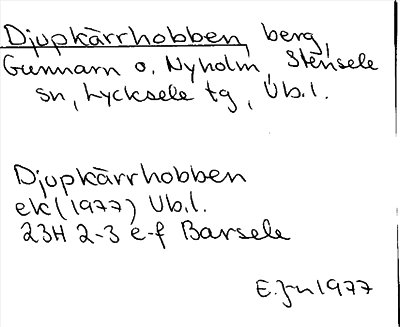 Djupkärrhobben, berg,
Gunnarn o. Nyholm, Stensele
sn, Lycksele tg, Vb.l.
Djupkärrhobben
ek (1977) Vb.l.
23H 2-3 e-f Barsele
E.Jn 1977